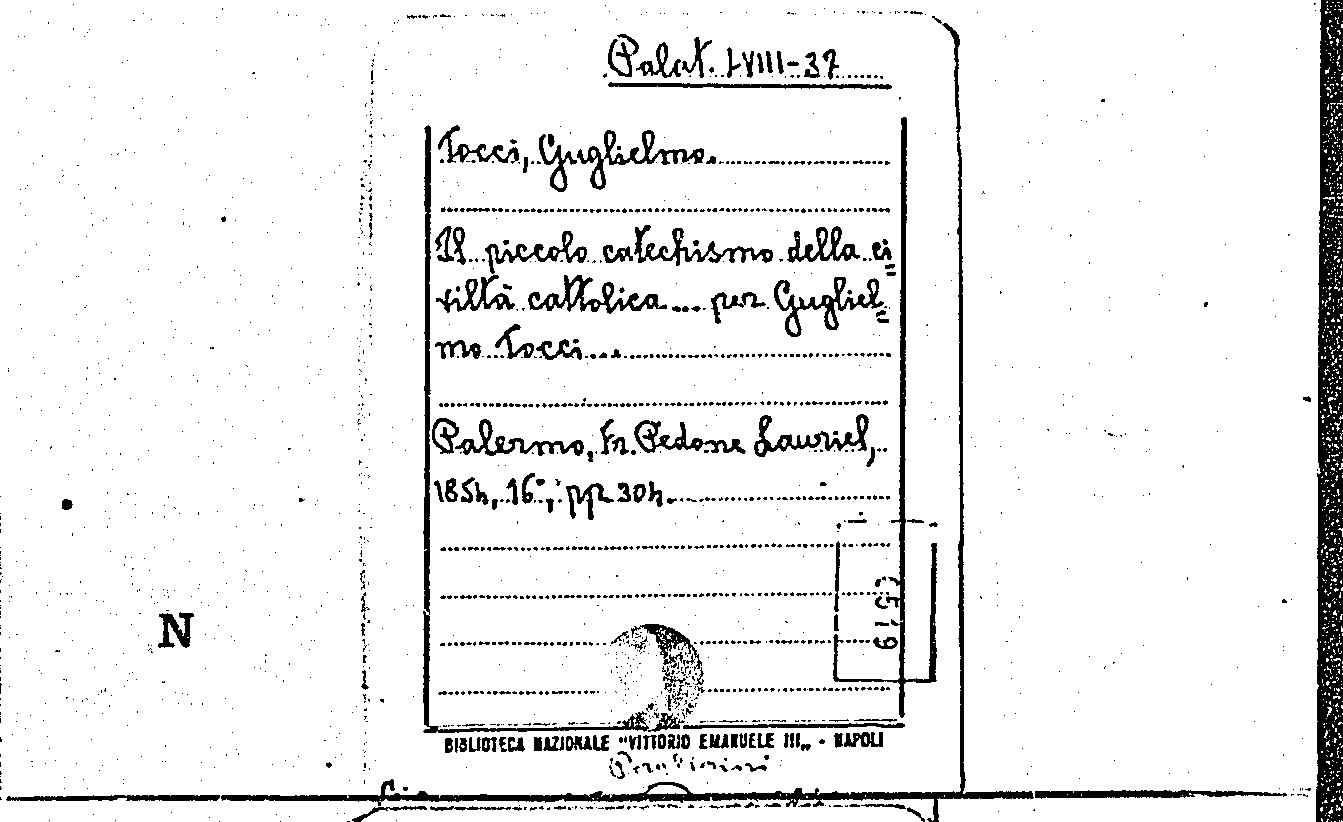 Palat. LVIII-37
Tocci, Guglielmo.
Il piccolo catechismo della ci=
viltà cattolica... per Gugliel=
mo Tocci...
Palermo, Fr. Pedone Lauriel,
1854, 16°, pp. 304.
N
BIBLIOTECA NAZIONALE "VITTORIO EMANUELE III„ - NAPOLI